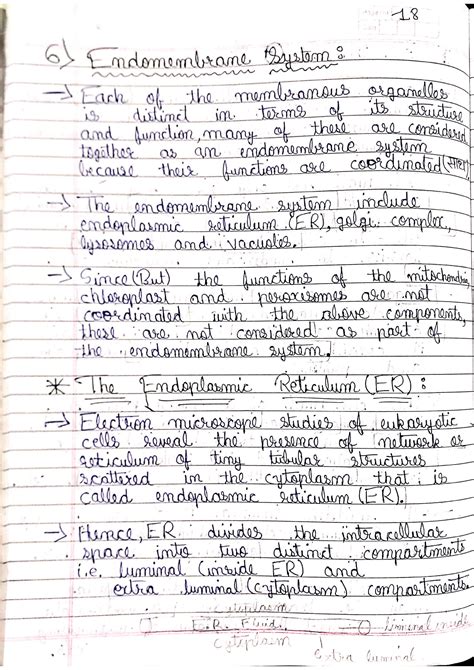 -18
6) Endomembrane System:
→ Each of the membranous organelles
is distinct in terms of its structure
and function, many of these are considered
together as an endomembrane system
because their functions are coordinated (साथ)
→ The endomembrane system include
endoplasmic reticulum (ER), golgi complex,
lysosomes and vacuoles.
→ Since (But) the functions of the mitochondria,
chloroplast and peroxisomes are not
coordinated with the above components,
these are not considered as part of
the endomembrane system.
* The Endoplasmic Reticulum (ER):
→ Electron microscope studies of eukaryotic
cells reveal the presence of network or
reticulum of tiny tubular structures
scattered in the cytoplasm that is
called endoplasmic reticulum (ER).
→ Hence, ER divides the intracellular
space into two distinct compartments
i.e. luminal (inside ER) and
extra luminal (cytoplasm) compartments.
Cytoplasm
E.R. Fluid
Luminal inside
Cytoplasm
Extra luminal